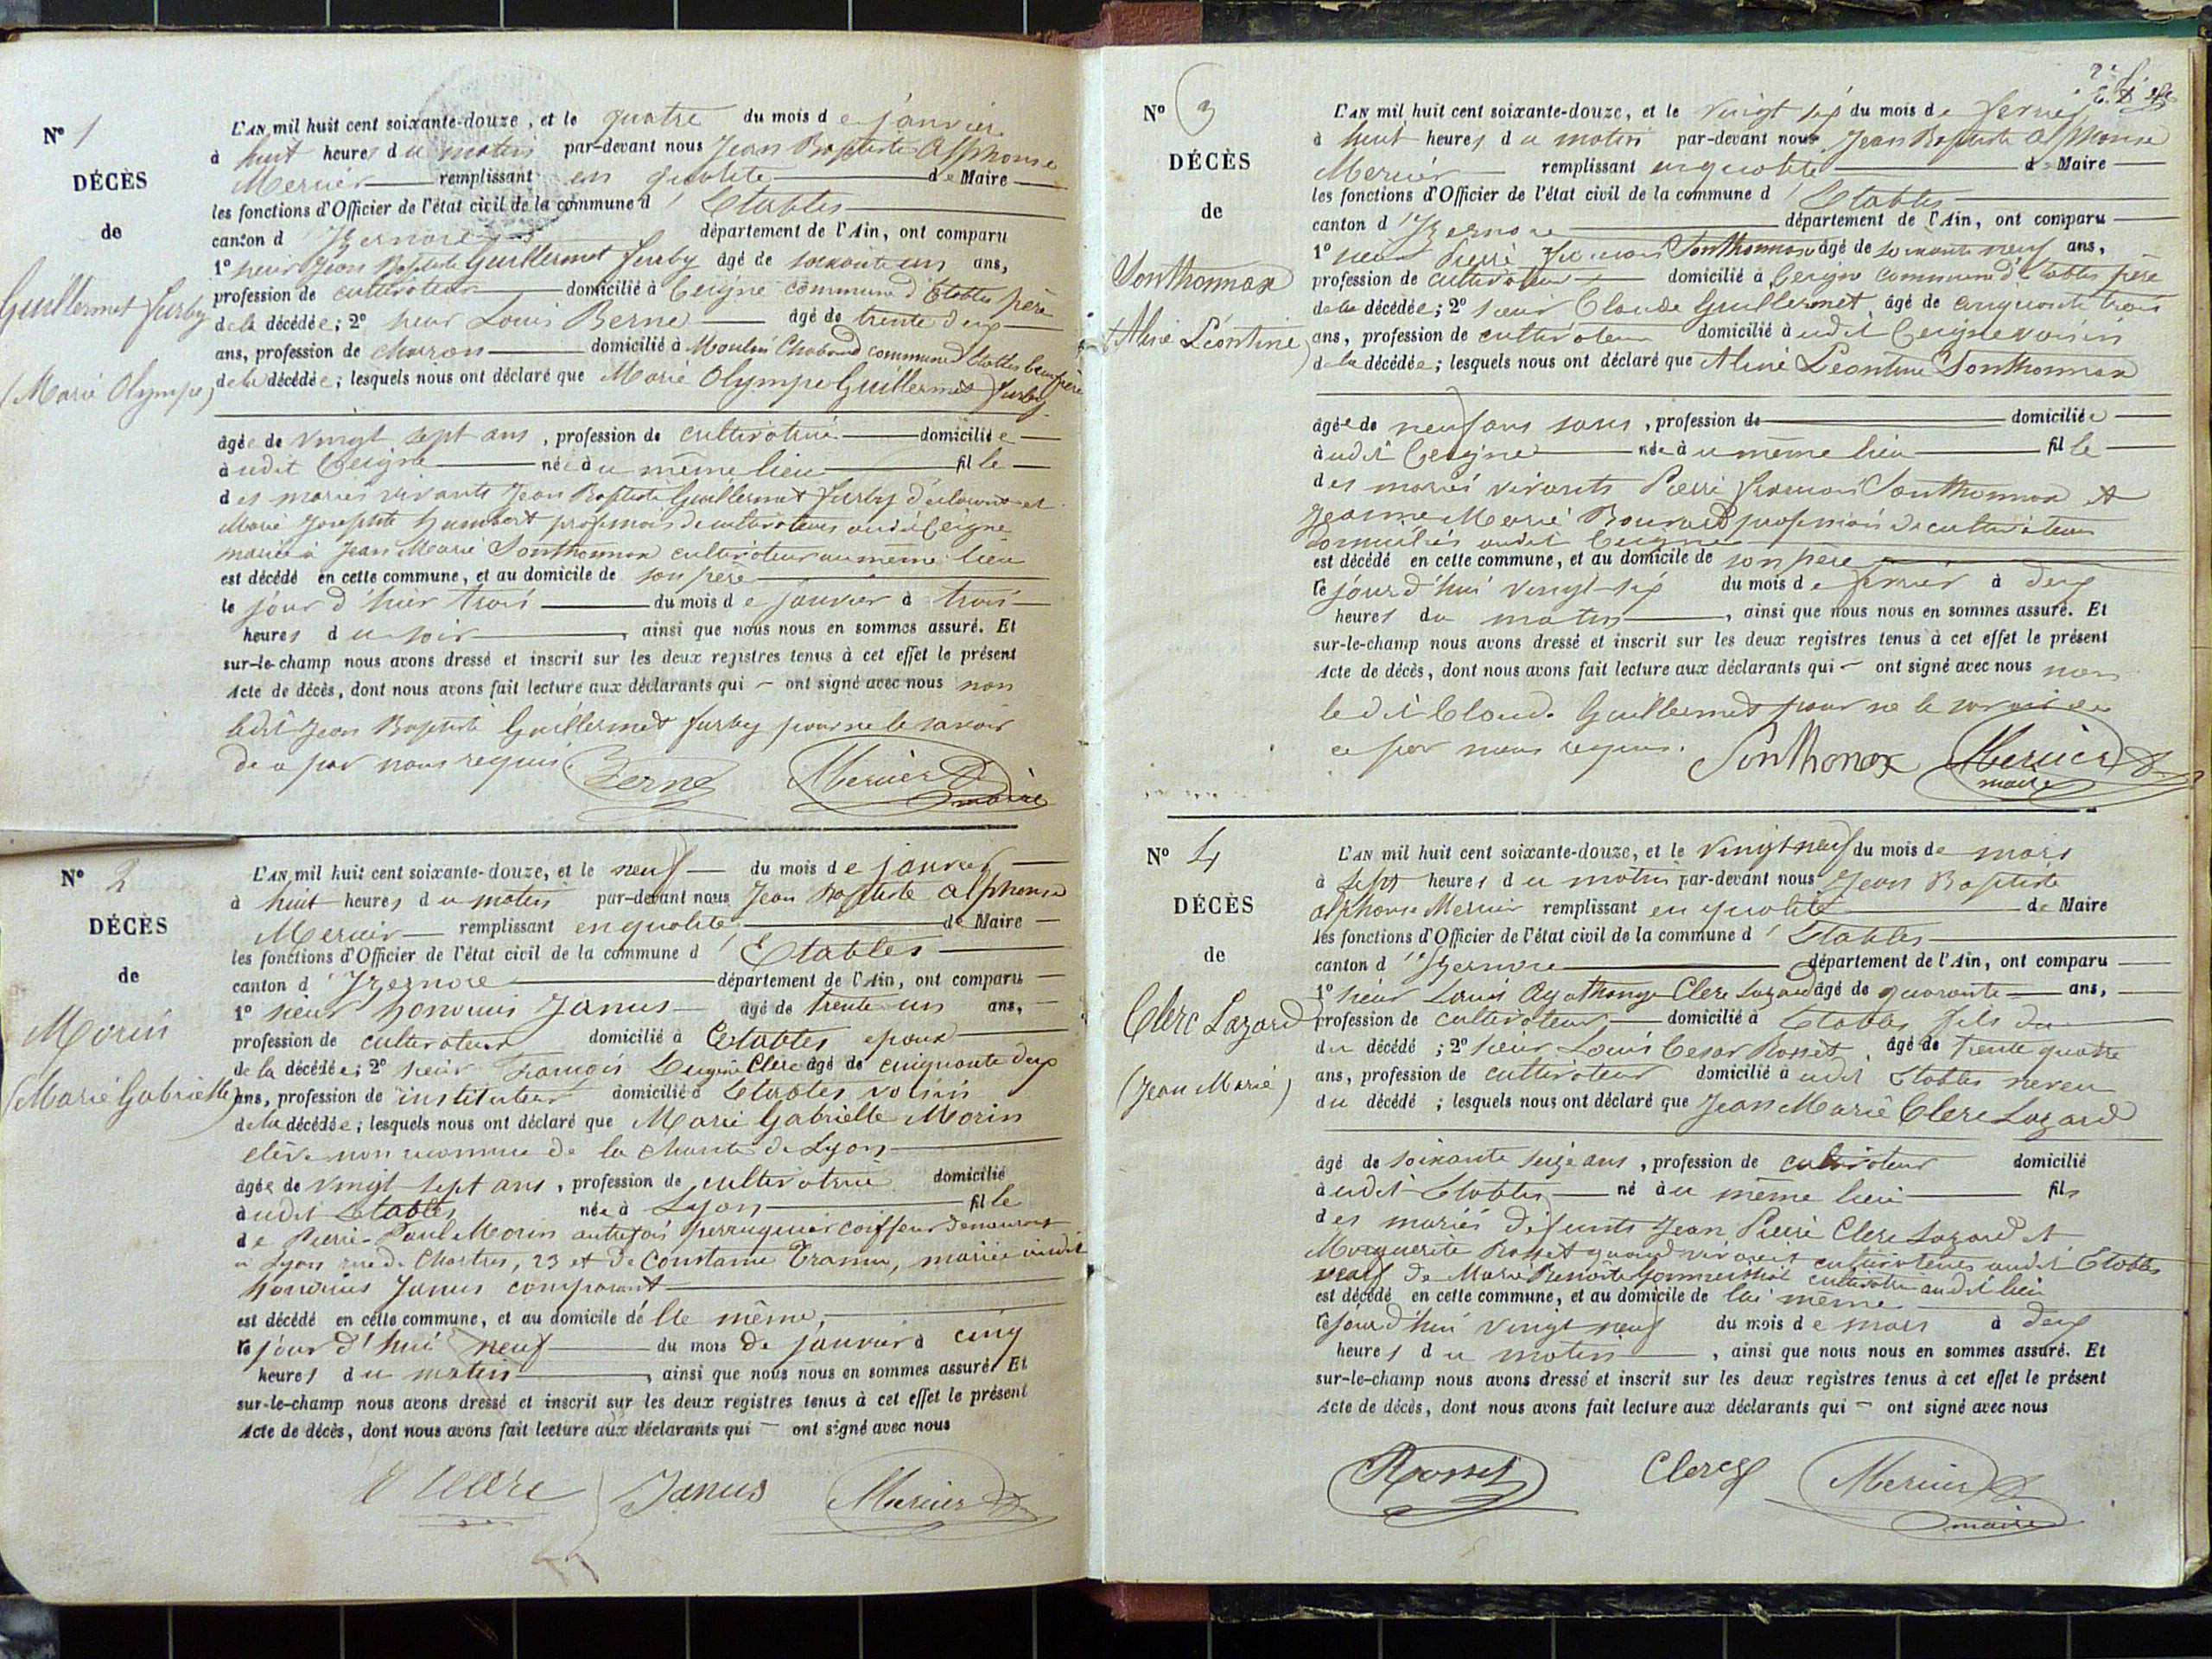 N° 1
DÉCÈS
de
Guillermet Furby
(Marie Olympe)
L'AN mil huit cent soixante-douze, et le quatre du mois de janvier
à huit heures du matin par-devant nous Jean Baptiste Alphonse
Mercier remplissant en qualité de Maire
les fonctions d'Officier de l'état civil de la commune d'Etables
canton d'Izernore département de l'Ain, ont comparu
1° sieur Jean Baptiste Guillermet furby âgé de soixante un ans,
profession de cultivateur domicilié à Ceigne commune d'Etables père
de la décédée; 2° sieur Louis Berne âgé de trente deux
ans, profession de charron domicilié à Moulin Chabaud commune d'Etables beau frère
de la décédée; lesquels nous ont déclaré que Marie Olympe Guillermet furby
âgée de vingt sept ans, profession de cultivatrice domiciliée
à udit Ceigne née à u même lieu fille
des mariés vivants Jean Baptiste Guillermet furby déclarant et
Marie Josephte Humbert profession de cultivateurs audit Ceigne
mariée à Jean Marie Sonthonnax cultivateur au même lieu
est décédé en cette commune, et au domicile de son père
le jour d'hier trois du mois de janvier à trois
heures du soir, ainsi que nous nous en sommes assuré. Et
sur-le-champ nous avons dressé et inscrit sur les deux registres tenus à cet effet le présent
Acte de décès, dont nous avons fait lecture aux déclarants qui – ont signé avec nous non
ledit Jean Baptiste Guillermet furby pour ne le savoir
de ce par nous requis
Berne Mercier
maire
N° 2
DÉCÈS
de
Morin
(Marie Gabrielle)
L'AN mil huit cent soixante-douze, et le neuf du mois de janvier
à huit heures du matin par-devant nous Jean Baptiste Alphonse
Mercier remplissant en qualité de Maire
les fonctions d'Officier de l'état civil de la commune d'Etables
canton d'Izernore département de l'Ain, ont comparu
1° sieur Honorius Janus âgé de trente un ans,
profession de cultivateur domicilié à Etables epoux
de la décédée; 2° sieur François Eugène Clerc âgé de cinquante deux
ans, profession de instituteur domicilié à Etables voisin
de la décédée; lesquels nous ont déclaré que Marie Gabrielle Morin
elève non reconnue de la charité de Lyon
âgée de vingt sept ans, profession de cultivatrice domicilié
à udit Etables née à Lyon fille
de Pierre-Paul Morin autrefois perruquier coiffeur demeurant
à Lyon rue de Chartres, 23 et de Constance, mariée audit
Honorius Janus comparant
est décédé en cette commune, et au domicile d'elle même,
le jour d'hui neuf du mois de janvier à cinq
heures du matin, ainsi que nous nous en sommes assuré. Et
sur-le-champ nous avons dressé et inscrit sur les deux registres tenus à cet effet le présent
Acte de décès, dont nous avons fait lecture aux déclarants qui – ont signé avec nous
Clerc Janus Mercier
N° 3
DÉCÈS
de
Sonthonnax
Aline Léontine
L'AN mil huit cent soixante-douze, et le vingt six du mois de fevrier
à huit heures du matin par-devant nous Jean Baptiste Alphonse
Mercier remplissant en qualité de Maire
les fonctions d'Officier de l'état civil de la commune d'Etables
canton d'Izernore département de l'Ain, ont comparu
1° sieur Pierre François Sonthonnax âgé de soixante neuf ans,
profession de cultivateur domicilié à Ceigne commune d'Etables père
de la décédée; 2° sieur Claude Guillermet âgé de cinquante trois
ans, profession de cultivateur domicilié à udit Ceigne voisin
de la décédée; lesquels nous ont déclaré que Aline Léontine Sonthonnax
âgée de neuf ans sans, profession de domiciliée
à udit Ceigne née à u même lieu fille
des mariés vivants Pierre François Sonthonnax et
Jeanne Marie Bouvard profession de cultivateurs
domiciliés audit Ceigne
est décédé en cette commune, et au domicile de son père
le jour d'hui vingt-six du mois de fevrier à deux
heures du matin, ainsi que nous nous en sommes assuré. Et
sur-le-champ nous avons dressé et inscrit sur les deux registres tenus à cet effet le présent
Acte de décès, dont nous avons fait lecture aux déclarants qui – ont signé avec nous non
ledit Claude Guillermet pour ne le savoir de
ce par nous requis. Sonthonax Mercier
maire
N° 4
DÉCÈS
de
Clerc Lazard
(Jean Marie)
L'AN mil huit cent soixante-douze, et le vingt neuf du mois de mars
à sept heures du matin par-devant nous Jean Baptiste
Alphonse Mercier remplissant en qualité de Maire
les fonctions d'Officier de l'état civil de la commune d'Etables
canton d'Izernore département de l'Ain, ont comparu
1° sieur Louis Agathange Clerc Lazard âgé de quarante ans,
profession de cultivateur domicilié à Etables fils du
du décédé; 2° sieur Louis Cesar Rosset âgé de trente quatre
ans, profession de cultivateur domicilié à udit Etables neveu
du décédé; lesquels nous ont déclaré que Jean Marie Clerc Lazard
âgé de soixante seize ans, profession de cultivateur domicilié
à udit Etables né à u même lieu fils
des mariés défunts Jean Pierre Clerc Lazard et
Marguerite Rosset quand vivaient cultivateurs audit Etables
veuf de Marie Benoite cultivatrice audit lieu
est décédé en cette commune, et au domicile de lui même
le jour d'hui vingt neuf du mois de mars à deux
heures du matin, ainsi que nous nous en sommes assuré. Et
sur-le-champ nous avons dressé et inscrit sur les deux registres tenus à cet effet le présent
Acte de décès, dont nous avons fait lecture aux déclarants qui – ont signé avec nous
Rosset Clerc Mercier
maire